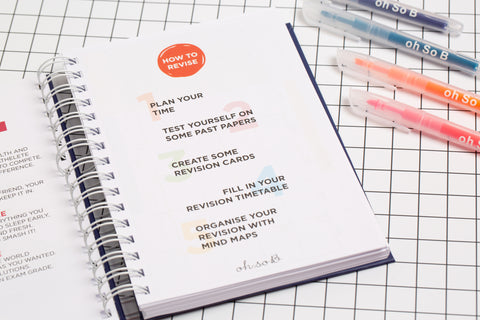 HOW TO
REVISE
1
PLAN YOUR
TIME
2
TEST YOURSELF ON
SOME PAST PAPERS
3
CREATE SOME
REVISION CARDS
4
FILL IN YOUR
REVISION TIMETABLE
5
ORGANISE YOUR
REVISION WITH
MIND MAPS
oh so B
TH AND
ATHLETE
TO COMPETE.
FFERENCE.
FRIEND, YOUR
KEEP IT IN.
RYTHING YOU
SLEEP EARLY,
AND FRESH.
SMASH IT!
WORLD
AS YOU WANTED.
OLUTIONS
N EXAM GRADE.
oh So B
oh So B
oh So B
oh So B